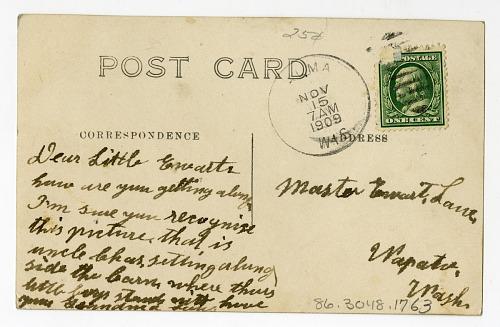 25¢
POST CARD
MA
NOV
15
7 AM
1909
WIS.
POSTAGE
ONE CENT
CORRESPONDENCE
ADDRESS
Dear Little Ewart
how are you getting along
I'm sure you recognise
this picture. that is
uncle Chas setting along
side the barn where those
little boys stands with have
your Grandma
Master Ewart Lane,
Wapato,
Wash.
86.3048.1763